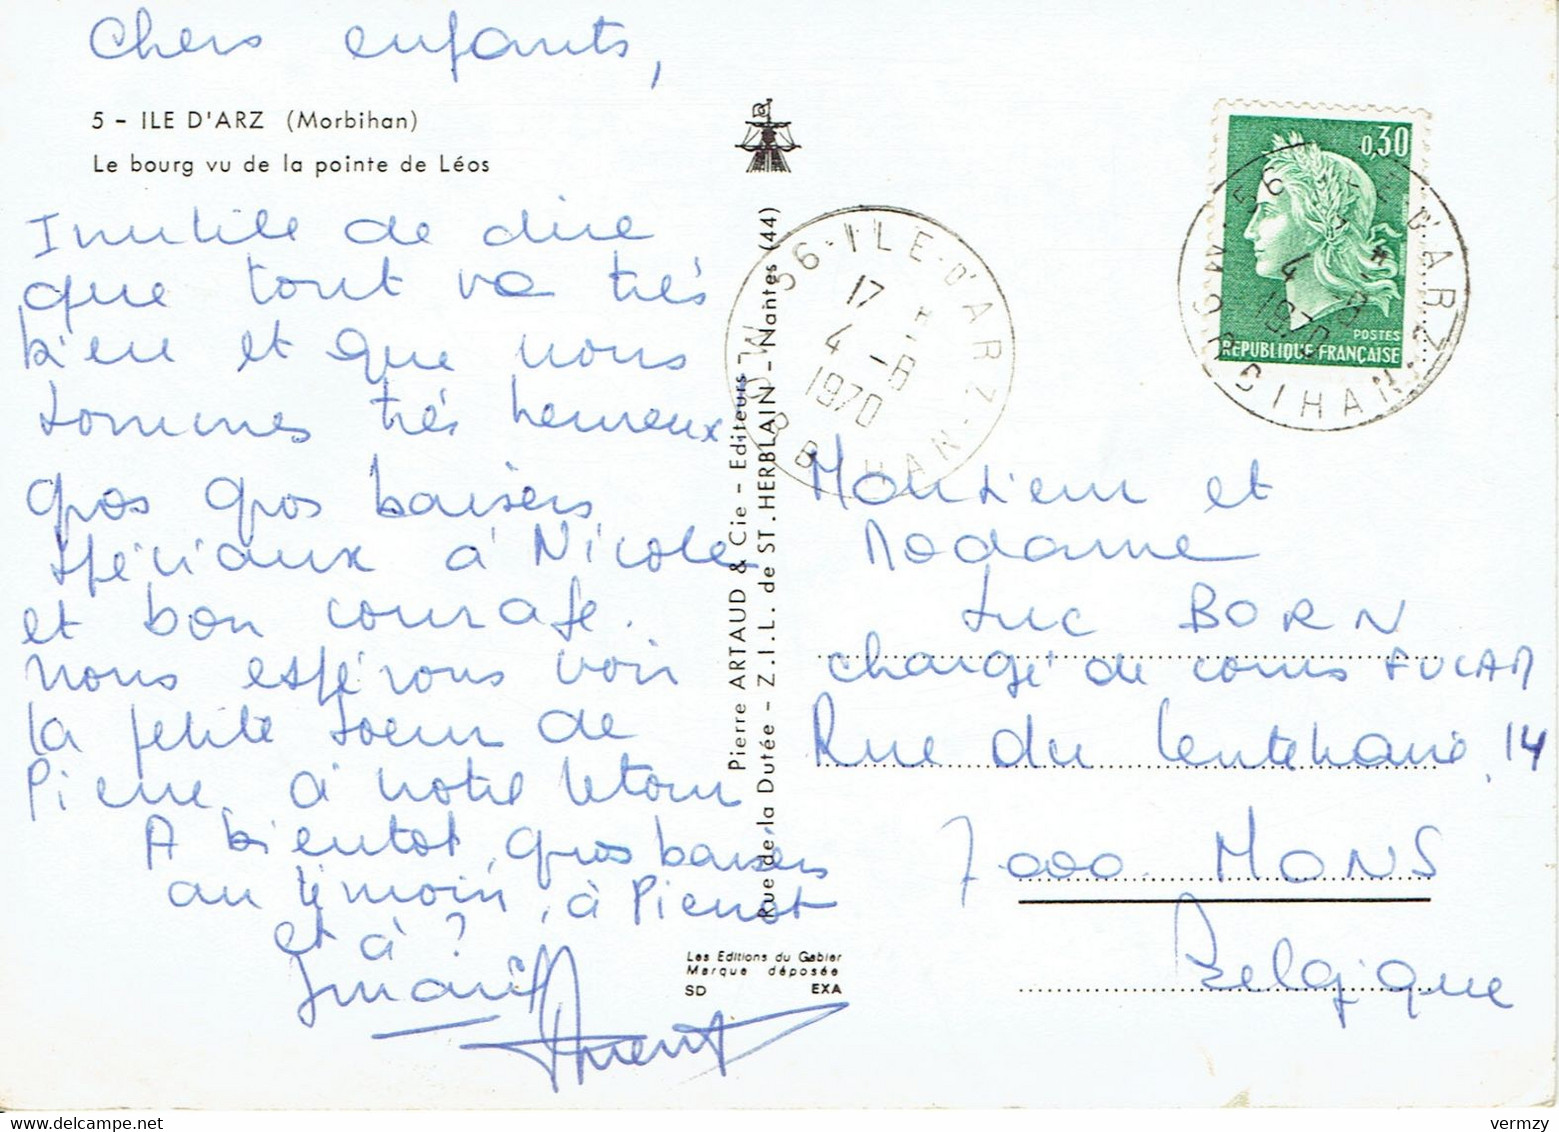 Chers enfants,
5 - ILE D'ARZ (Morbihan)
Le bourg vu de la pointe de Léos
Inutile de dire
que tout va très
bien et que nous
sommes très heureux
gros gros baisers
spéciaux à Nicole
et bon courage.
nous espérons voir
la petite soeur de
Pierre à notre retour
A bientôt, gros baisers
au et à Pierrot
et à ?
Pierre ARTAUD & Cie - Editeurs
Rue de la Dutée - Z.I.L. de ST. HERBLAIN - Nantes (44)
Les Editions du Gabier
Marque déposée
SD EXA
56 - ILE-D'ARZ
17 H
4 - 8
1970
MORBIHAN
0,30
POSTES
REPUBLIQUE FRANÇAISE
56 - ILE-D'ARZ
4 - 8
1970
MORBIHAN
Monsieur et
Madame
Luc BORN
chargé de cours FUCAM
Rue du 14
7000 MONS
Belgique
vermzy